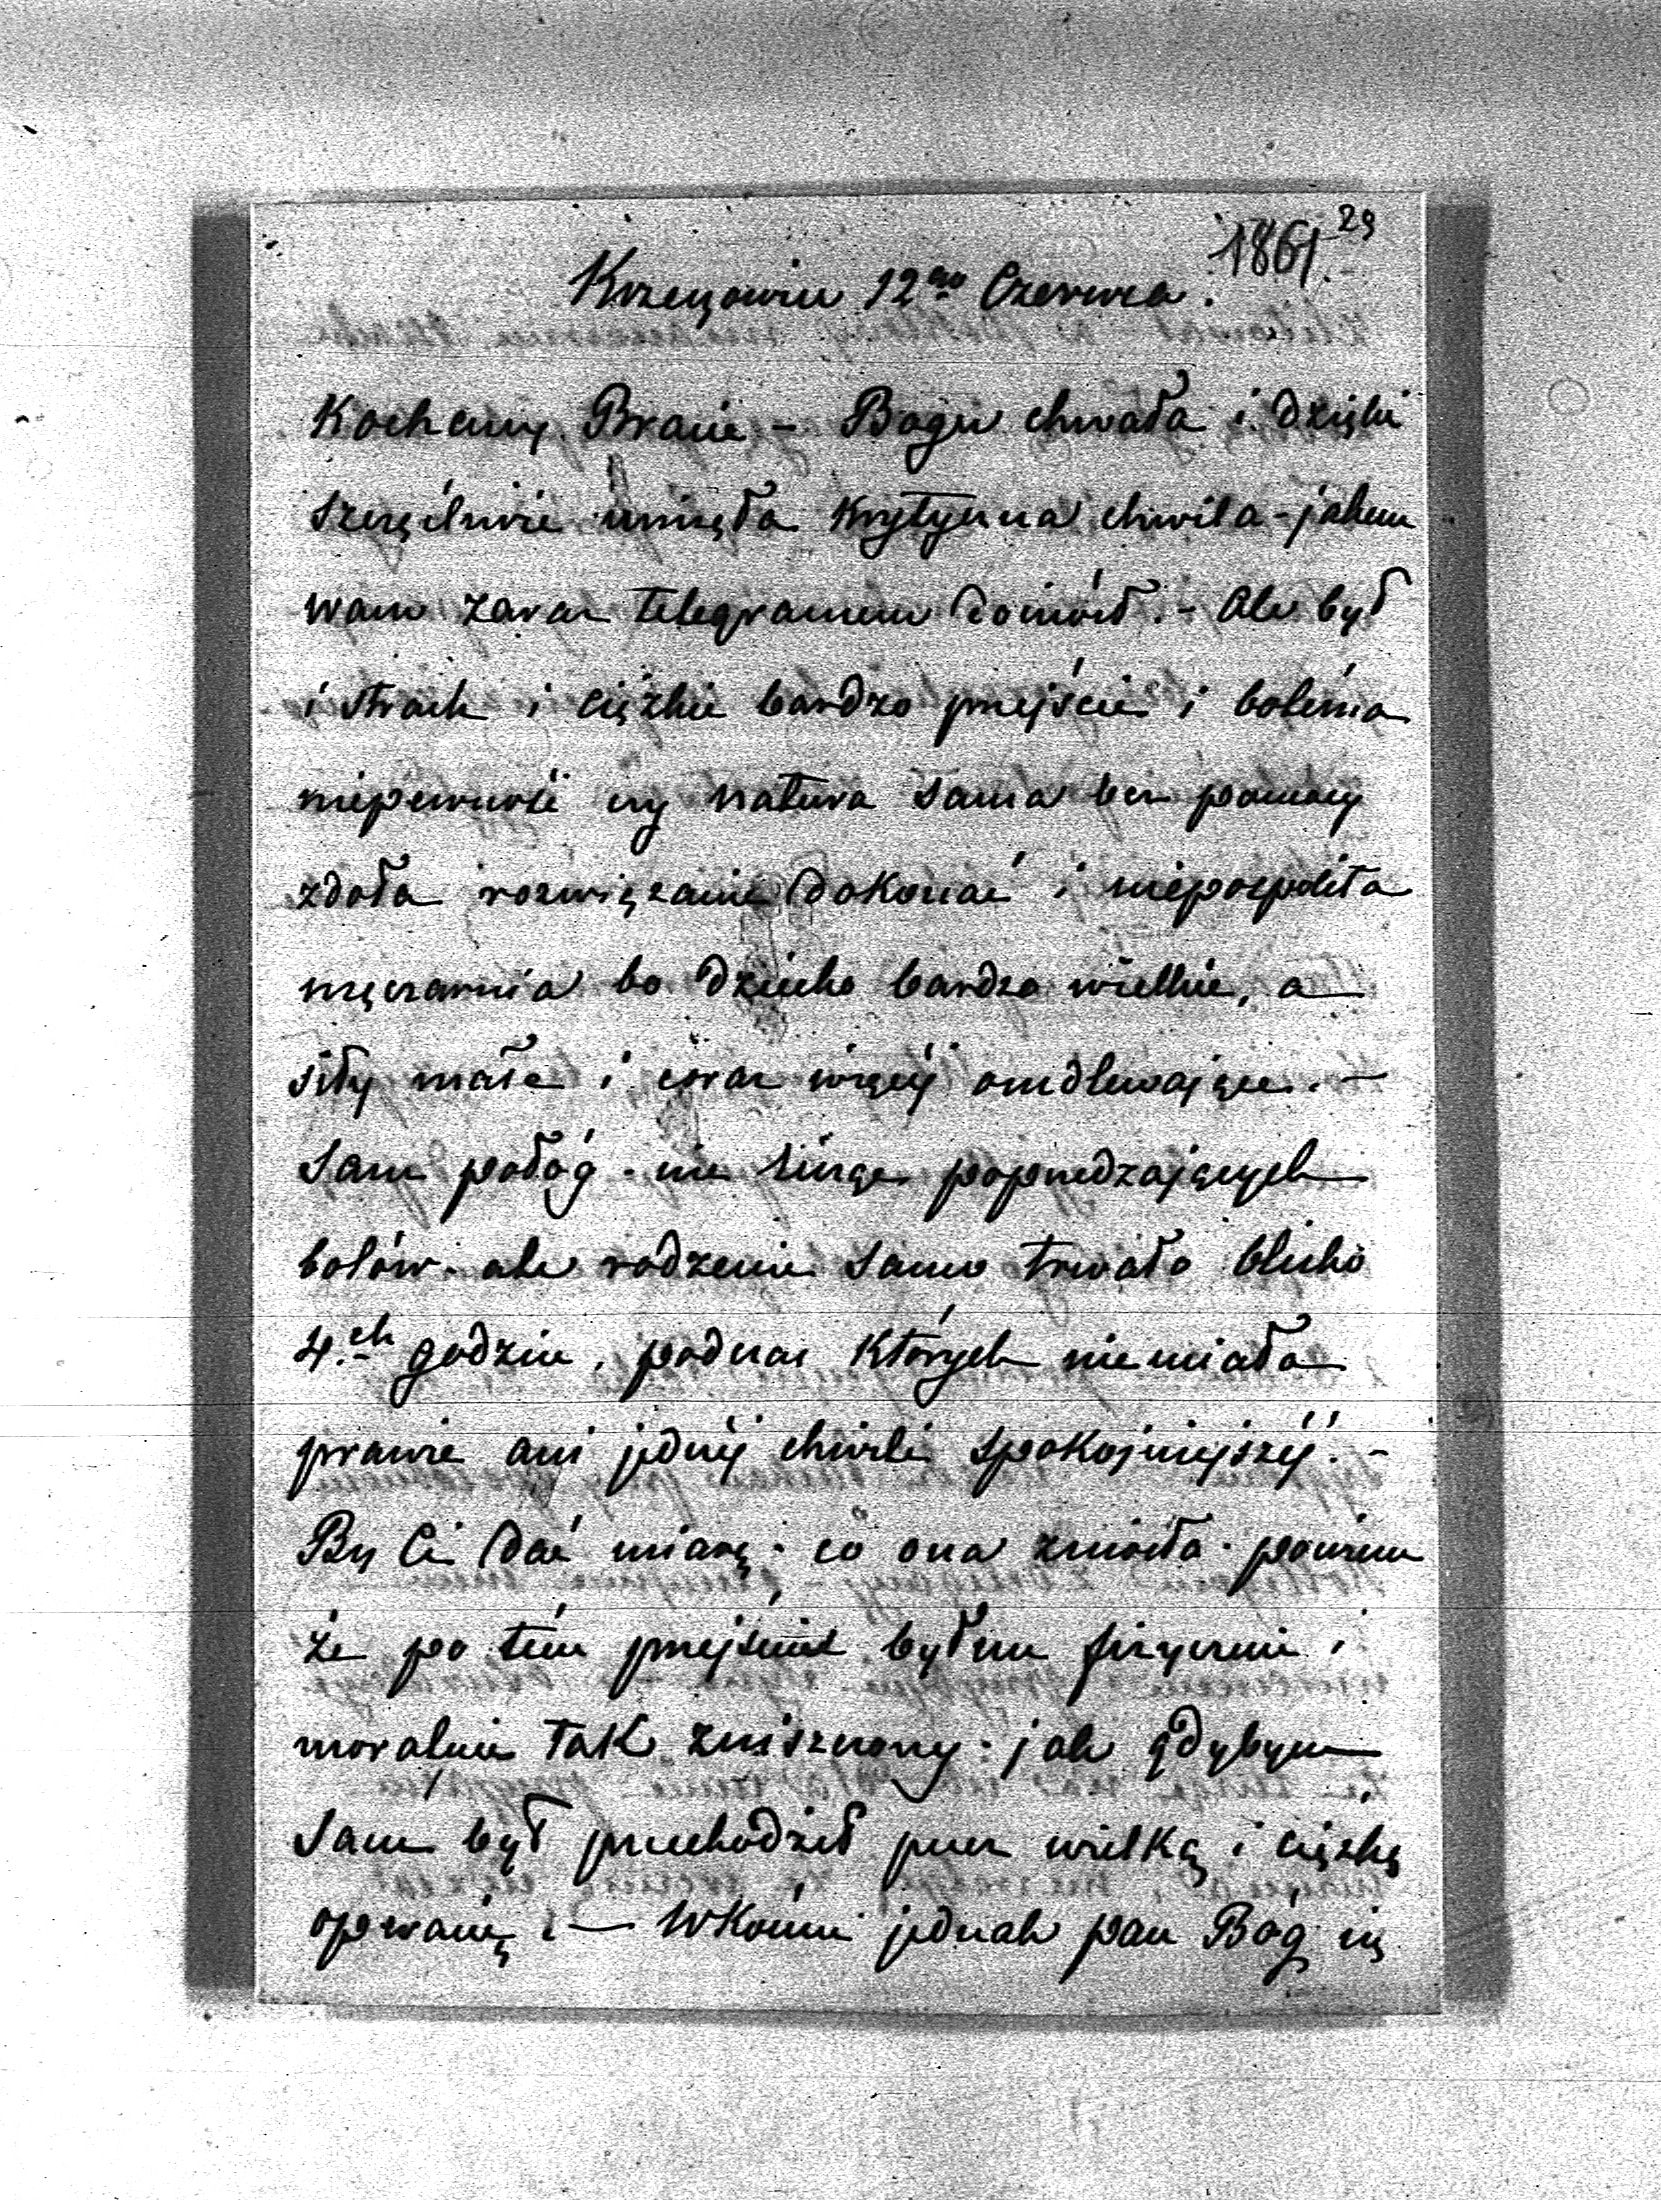 29
1861.
Krzeszowice 12go Czerwca.
Kochany Bracie - Bogu chwała i dzięki
szczęśliwie minęła krytyczna chwila - jakem
wam zaraz telegramem doniósł. - Ale był
i strach i ciężkie bardzo przejście i boleśna
niepewność czy natura sama bez pomocy
zdoła rozwiązanie dokonać i niepospolita
męczarnia bo dziecko bardzo wielkie, a
siły małe i coraz więcéj omdlewające. -
Sam połóg - nie licząc poprzedzających
bolów - ale rodzenie samo trwało blisko
4.ch godzin, podczas których nie miała
prawie ani jednéj chwili spokojniejszéj. -
By Ci dać miarę - co ona zniosła - powiem
że po tém przejściu byłem fizycznie i
moralnie tak zniszczony - jak gdybym
sam był przechodził przez wielką i ciężką
operacią. — W końcu jednak pan Bóg się